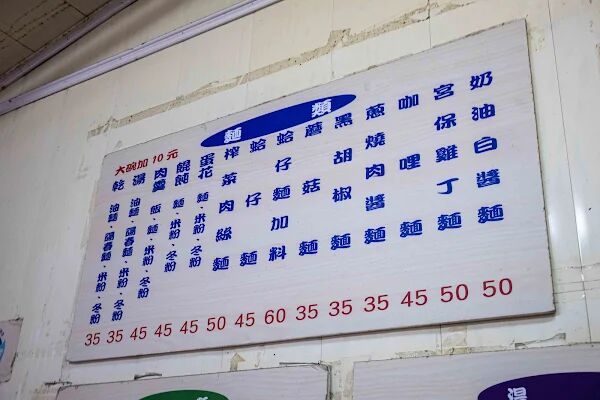 麵類
大碗加10元
乾 油麵、陽春麵、米粉、冬粉
湯 油麵、陽春麵、米粉、冬粉
肉羹 飯、麵、米粉、冬粉
餛飩 麵、米粉、冬粉
蛋花 麵、米粉、冬粉
榨菜肉絲麵
蛤仔麵
蛤仔麵加料
蘑菇麵
黑胡椒麵
蔥燒肉醬麵
咖哩麵
宮保雞丁麵
奶油白醬麵
35 35 45 45 45 50 45 60 35 35 35 45 50 50
湯